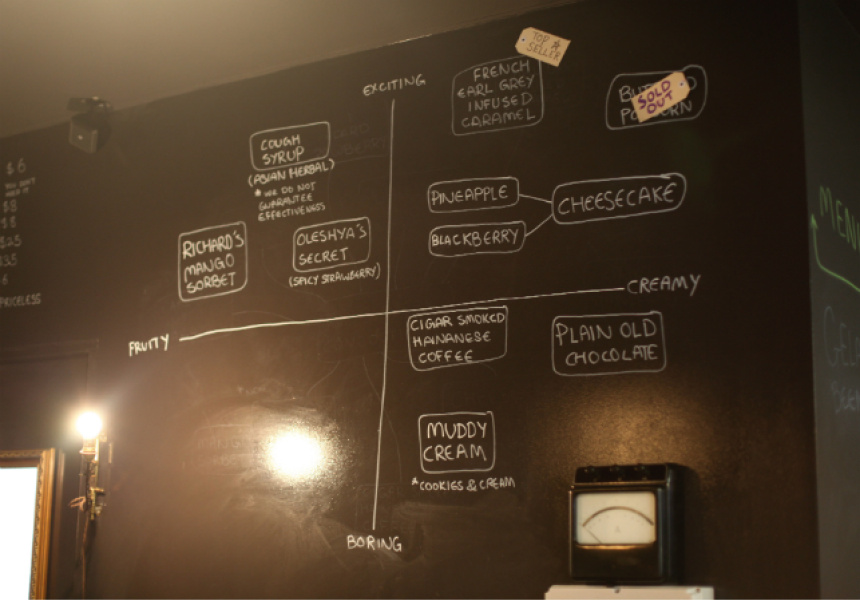 TOP ★
SELLER
EXCITING
FRENCH
EARL GREY
INFUSED
CARAMEL
SOLD
OUT
COUGH
SYRUP
(ASIAN HERBAL)
* WE DO NOT
GUARANTEE
EFFECTIVENESS
PINEAPPLE
CHEESECAKE
BLACKBERRY
RICHARD'S
MANGO
SORBET
OLESHYA'S
SECRET
(SPICY STRAWBERRY)
CREAMY
FRUITY
CIGAR SMOKED
HAINANESE
COFFEE
PLAIN OLD
CHOCOLATE
MUDDY
CREAM
*COOKIES & CREAM
BORING
$6
PRICELESS